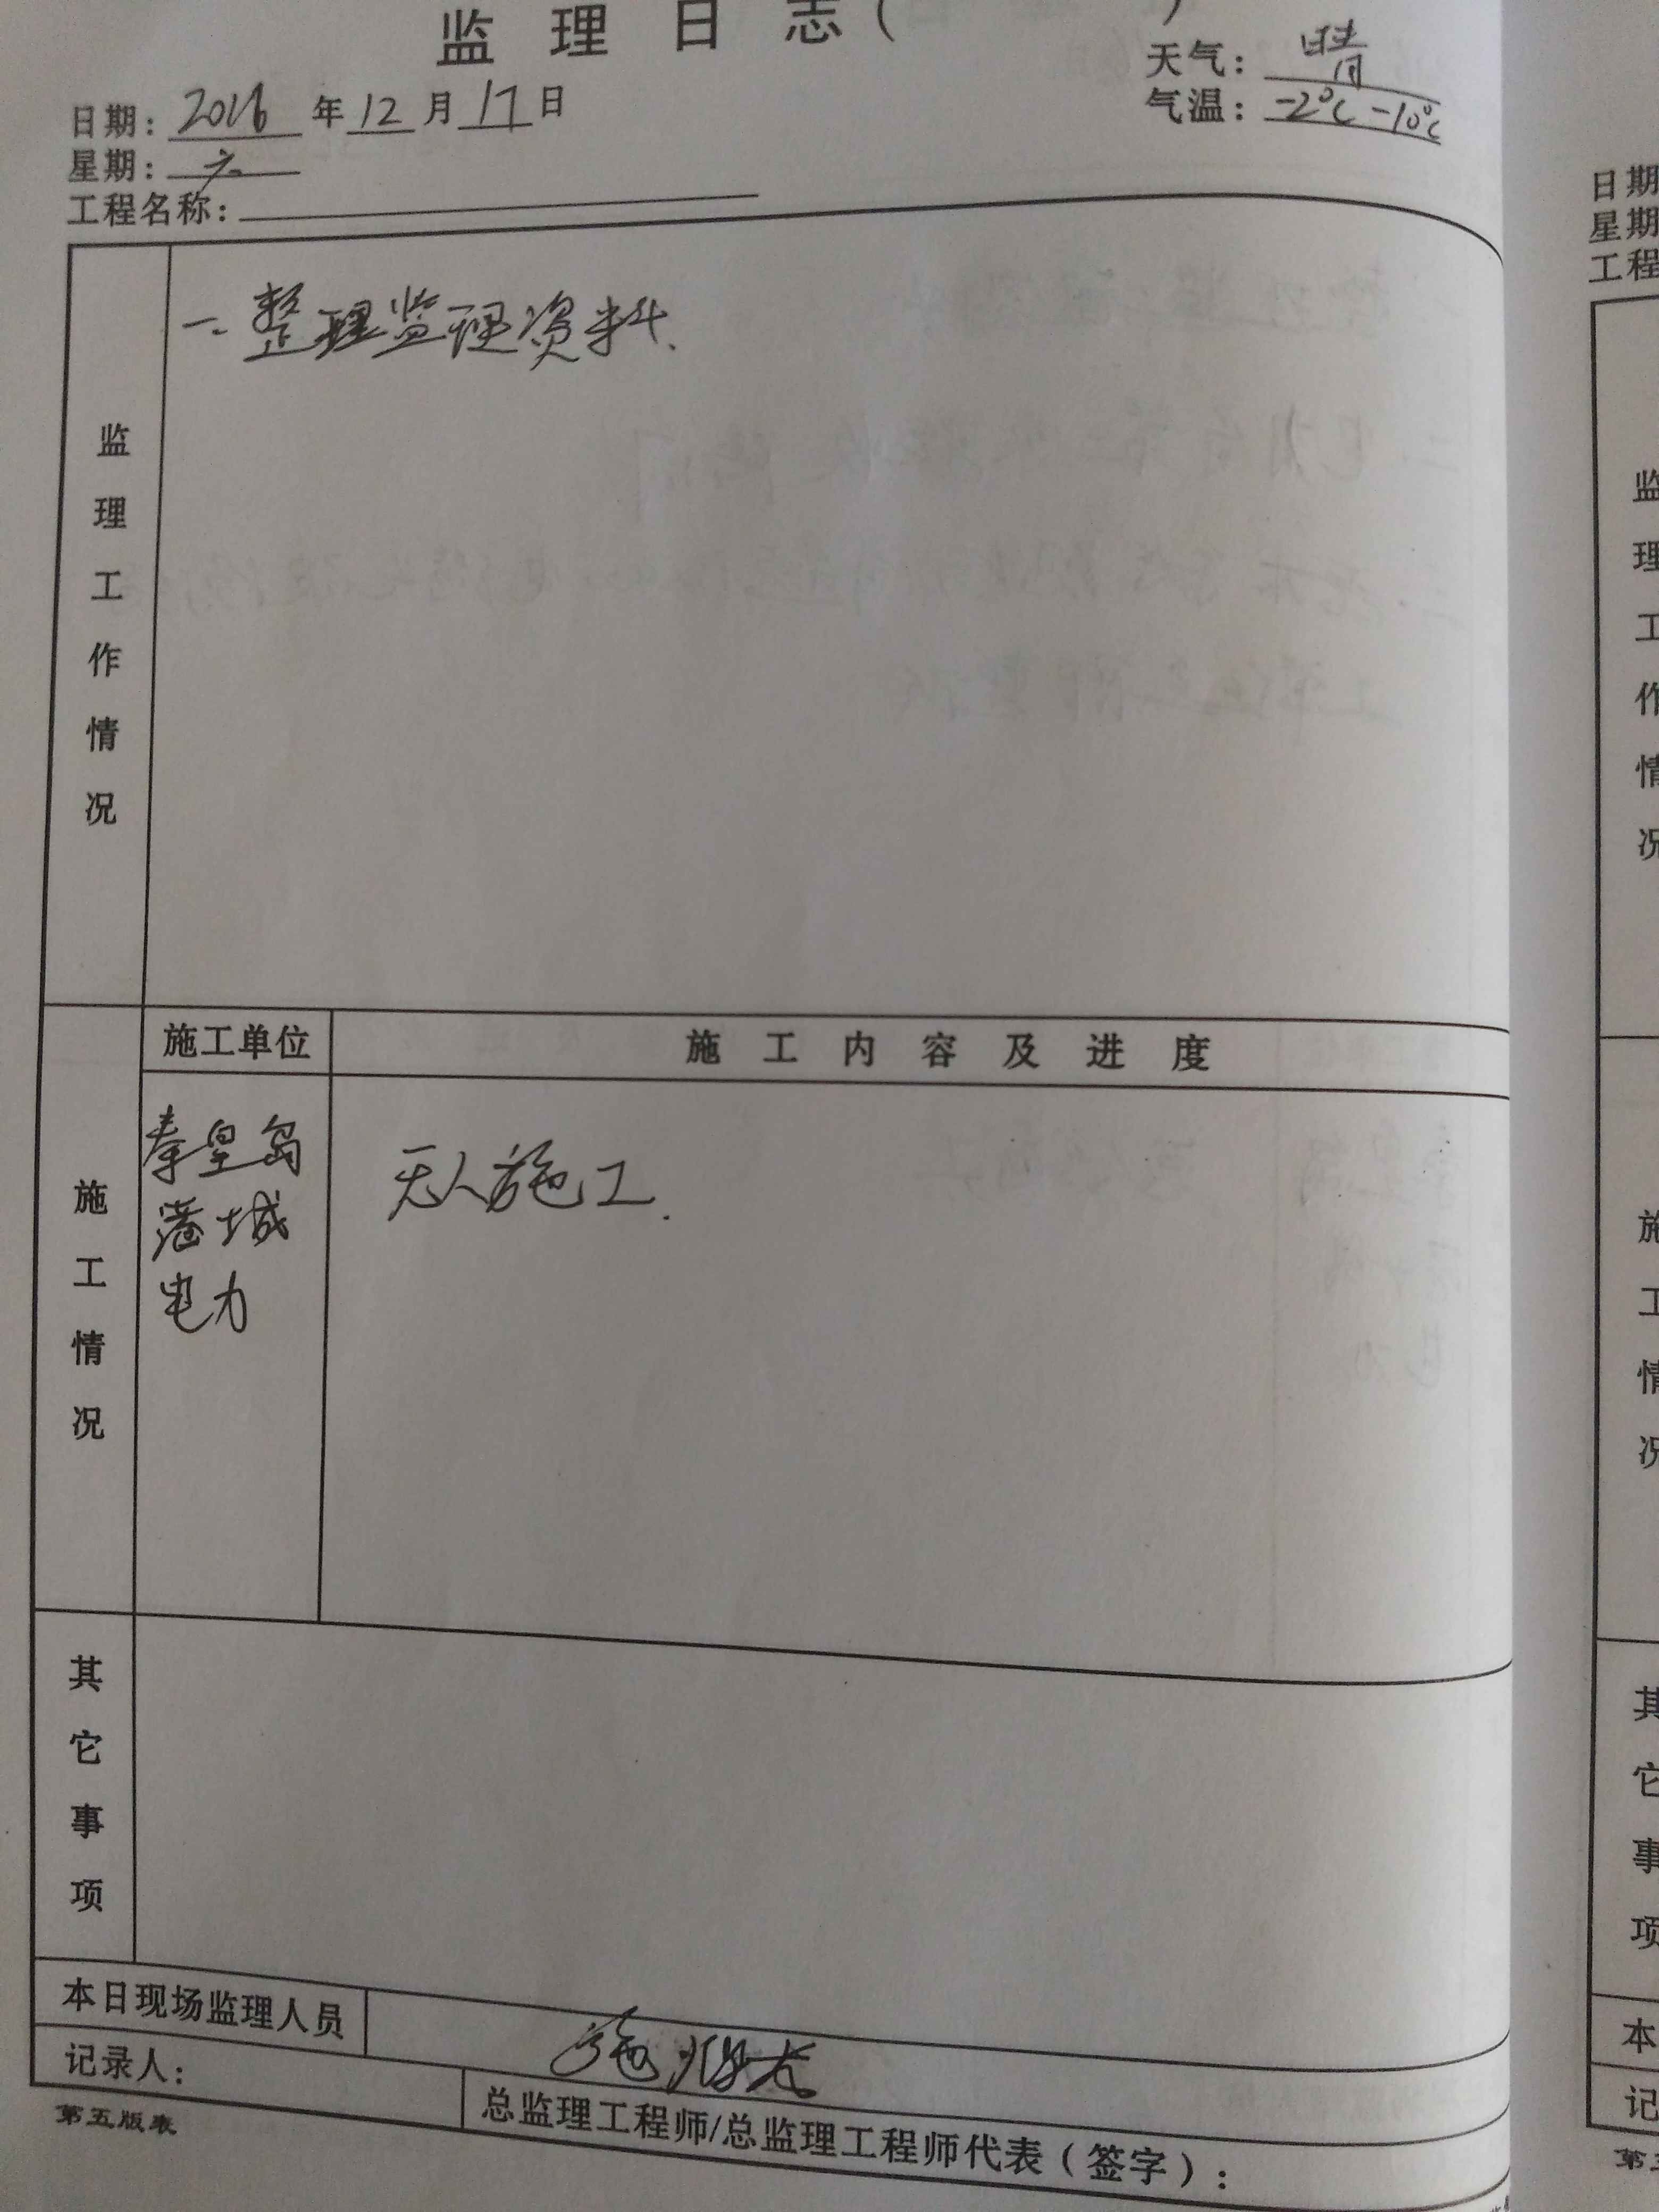 监理日志( )
天气: 晴
日期: 2016 年 12 月 17 日
气温: -2℃ -10℃
星期: 六
工程名称:
监理工作情况
一. 整理监理资料.
施工情况
施工单位
施工内容及进度
秦皇岛
港城
电力
无人施工.
其它事项
本日现场监理人员
记录人:
总监理工程师/总监理工程师代表(签字):
第五版表
日期
星期
工程
监理工作情况
施工情况
其它事项
本
记
第